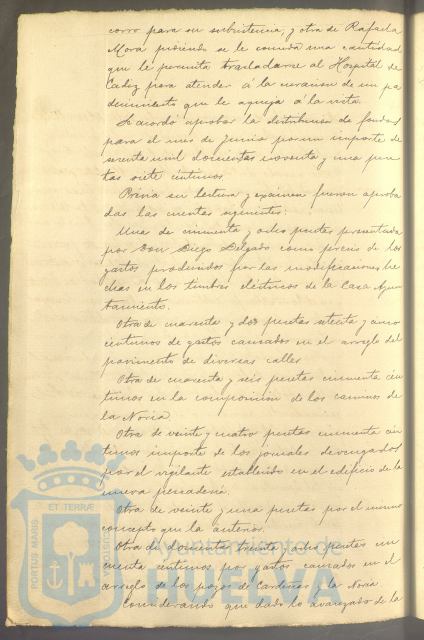 corro para su subsistencia, y otra de Rafaela
Mora pidiendo se le conceda una cantidad
que le permita trasladarse al Hospital de
Cádiz para atender á la curacion de un pa
decimiento que le aqueja á la vista.
Se acordó aprobar la distribucion de fondos
para el mes de Junio por un importe de
setenta mil doscientas noventa y una pese
tas siete céntimos
Prévia su lectura y exámen fueron aproba
das las cuentas siguientes:
Una de cincuenta y ocho pesetas presentada
por Don Diego Delgado como precio de los
gastos producidos por las modificaciones he
chas en los timbres eléctricos de la Casa Ayun
tamiento.
Otra de cuarenta y dos pesetas setenta y cinco
centimos de gastos causados en el arreglo del
pavimento de diversas calles
Otra de cuarenta y seis pesetas cincuenta cén
timos en la composicion de los caminos de
la Noria
Otra de veinte y cuatro pesetas cincuenta cén
timos importe de los jornales devengados
por el vigilante establecido en el edificio de la
nueva pescadería.
Otra de veinte y una pesetas por el mismo
concepto que la anterior.
Otra de doscientas treinta y ocho pesetas cin
cuenta centimos por gastos causados en el
arreglo de los pozos de Cardeñas y la Noria
Considerando que dado lo avanzado de la
PORTUS MARIS
ET TERRÆ
CUSTODIA
Ayuntamiento de
HUELVA